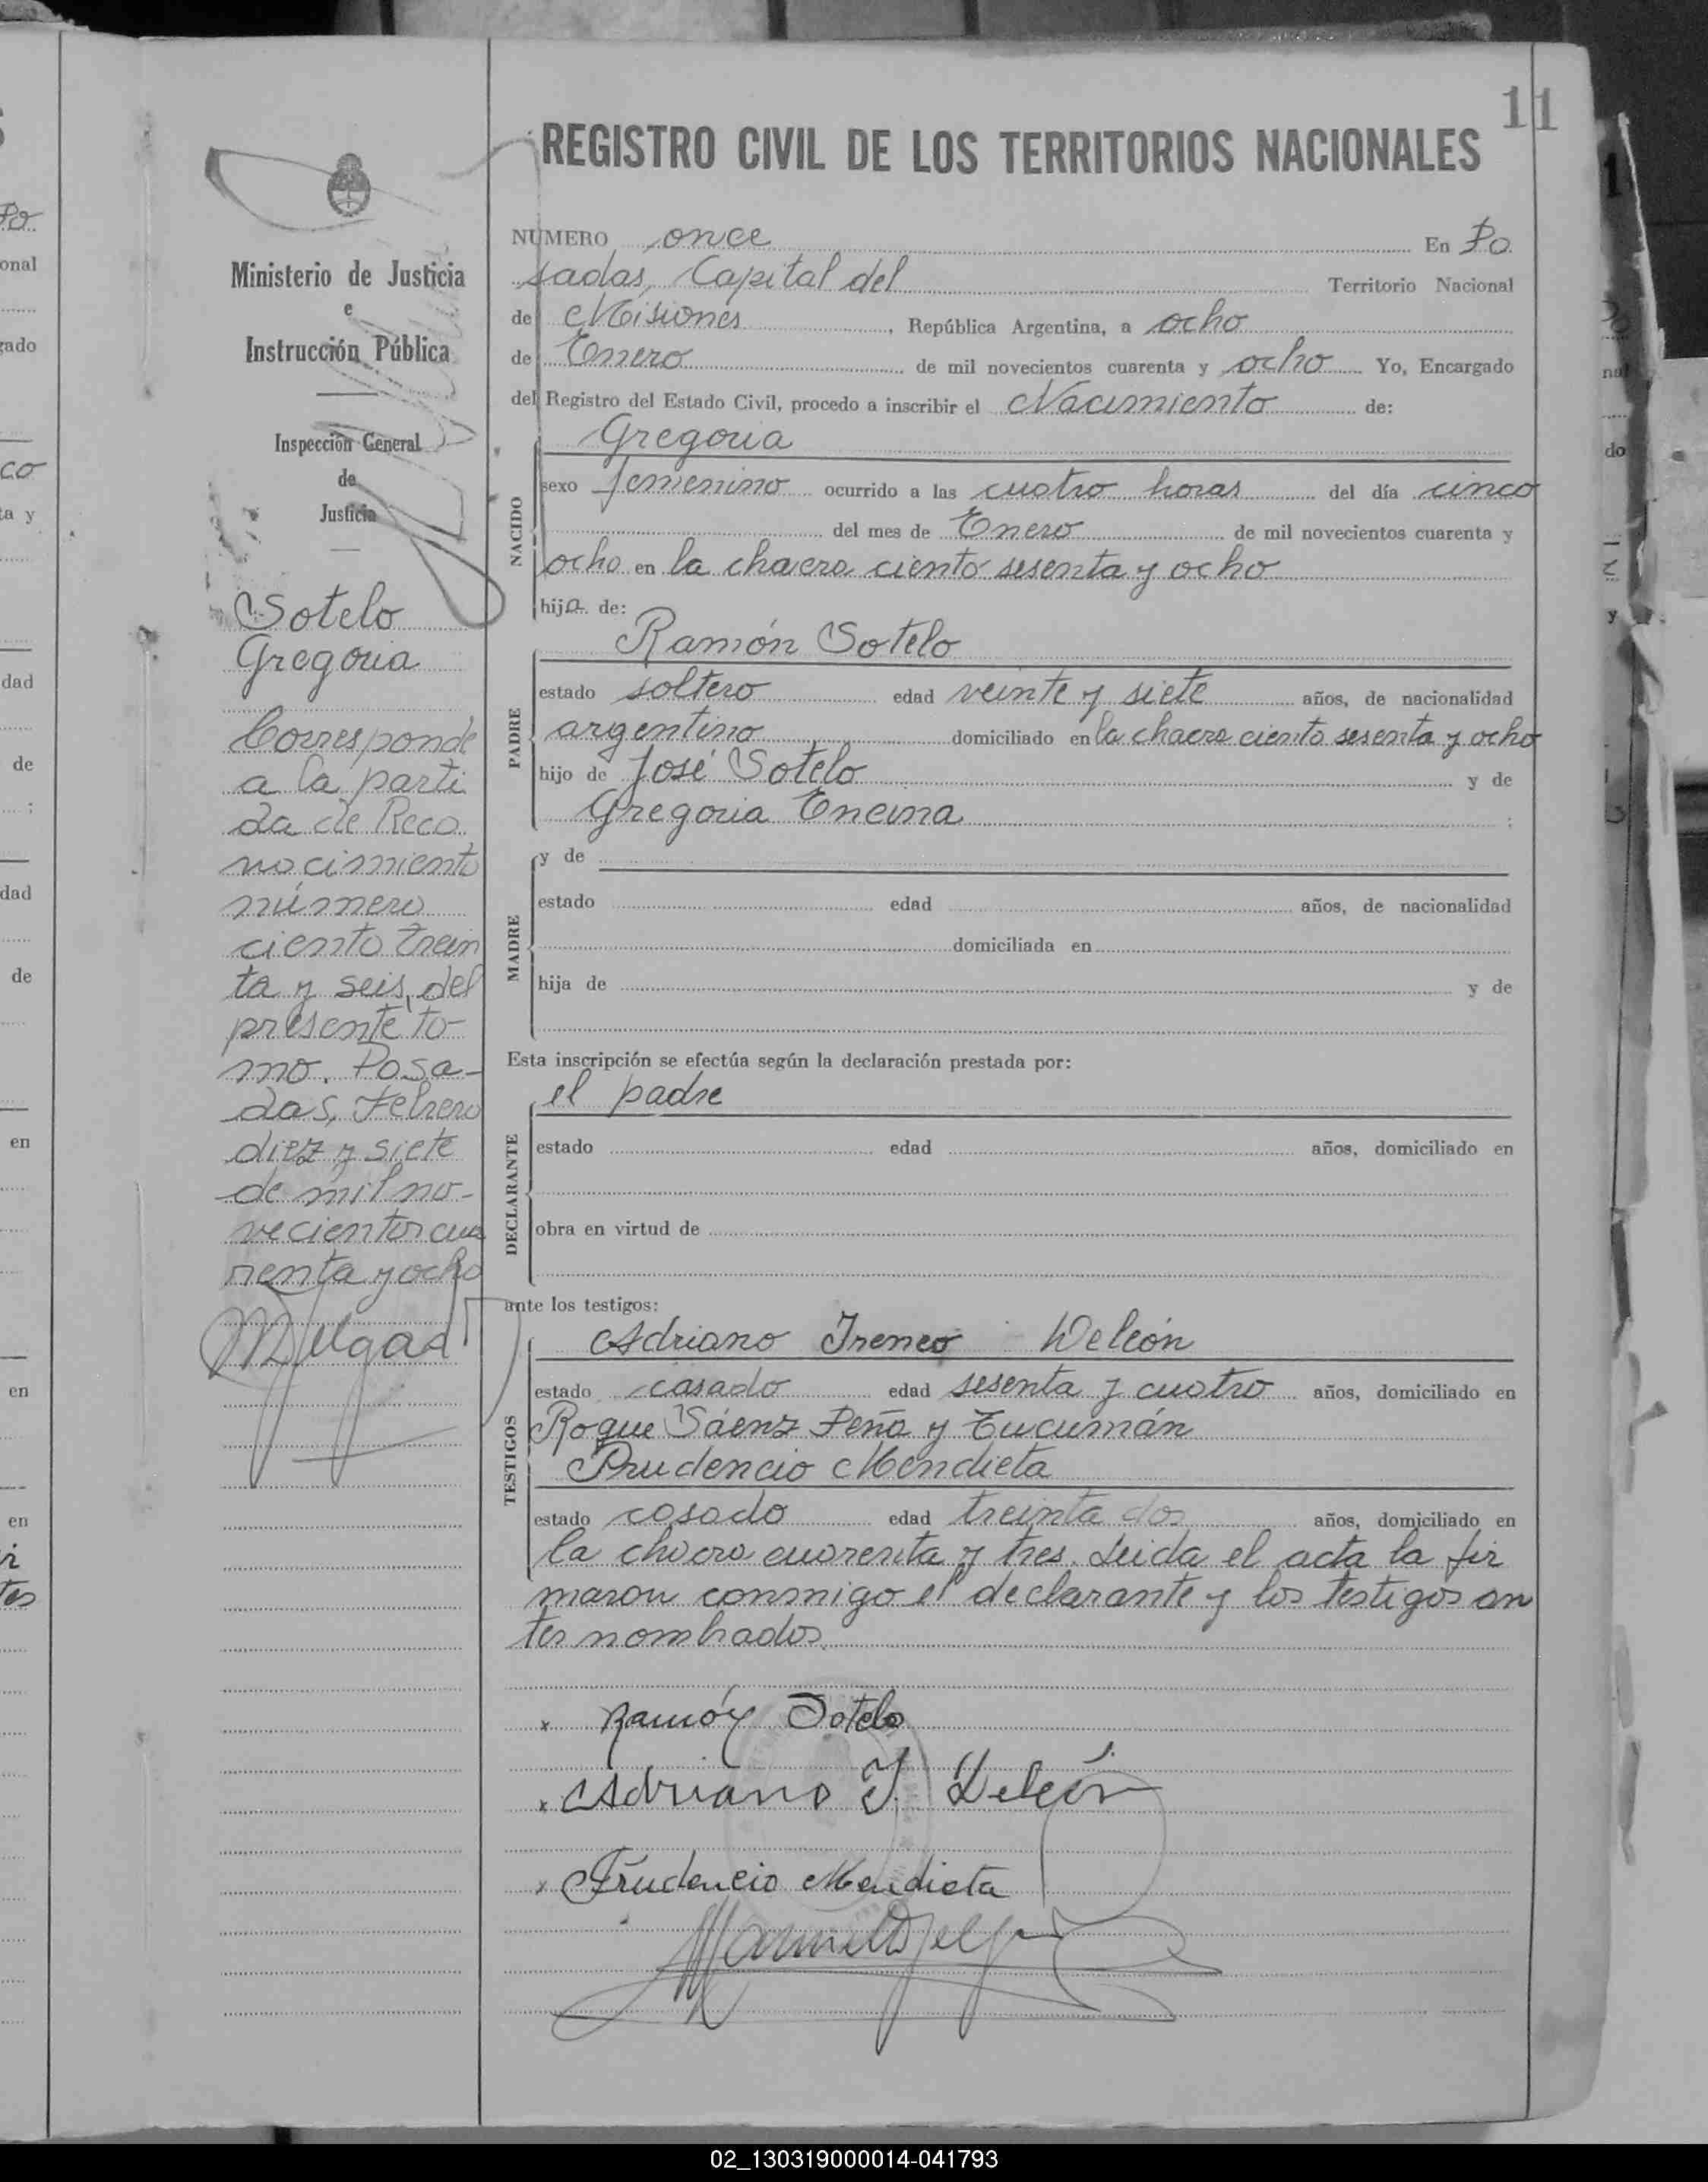 11
REGISTRO CIVIL DE LOS TERRITORIOS NACIONALES
Ministerio de Justicia
e
Instrucción Pública
Inspección General
de
Justicia
Sotelo
Gregoria
Corresponde
a la parti
da de Reco
nocimiento
número
ciento trein
ta y seis, del
presente to-
mo. Posa-
das, Febrero
diez y siete
de mil no-
vecientos cua
renta y ocho
NUMERO once En Po
sadas, Capital del Territorio Nacional
de Misiones, República Argentina, a ocho
de Enero de mil novecientos cuarenta y ocho Yo, Encargado
del Registro del Estado Civil, procedo a inscribir el Nacimiento de:
NACIDO
Gregoria
sexo femenino ocurrido a las cuatro horas del día cinco
del mes de Enero de mil novecientos cuarenta y
ocho en la chacra ciento sesenta y ocho
hija de:
PADRE
Ramón Sotelo
estado soltero edad veinte y siete años, de nacionalidad
argentino domiciliado en la chacra ciento sesenta y ocho
hijo de José Sotelo y de
Gregoria Encina ;
MADRE
y de
estado edad años, de nacionalidad
domiciliada en
hija de y de
Esta inscripción se efectúa según la declaración prestada por:
DECLARANTE
el padre
estado edad años, domiciliado en
obra en virtud de
ante los testigos:
TESTIGOS
Adriano Ireneo Deleón
estado casado edad sesenta y cuatro años, domiciliado en
Roque Sáenz Peña y Tucumán
Prudencio Mendieta
estado casado edad treinta dos años, domiciliado en
la chacra cuarenta y tres. Leida el acta la fir
maron conmigo el declarante y los testigos an
tes nombrados.
x Ramón Sotelo
x Adriano I. Deleón
x Prudencio Mendieta
02_130319000014-041793